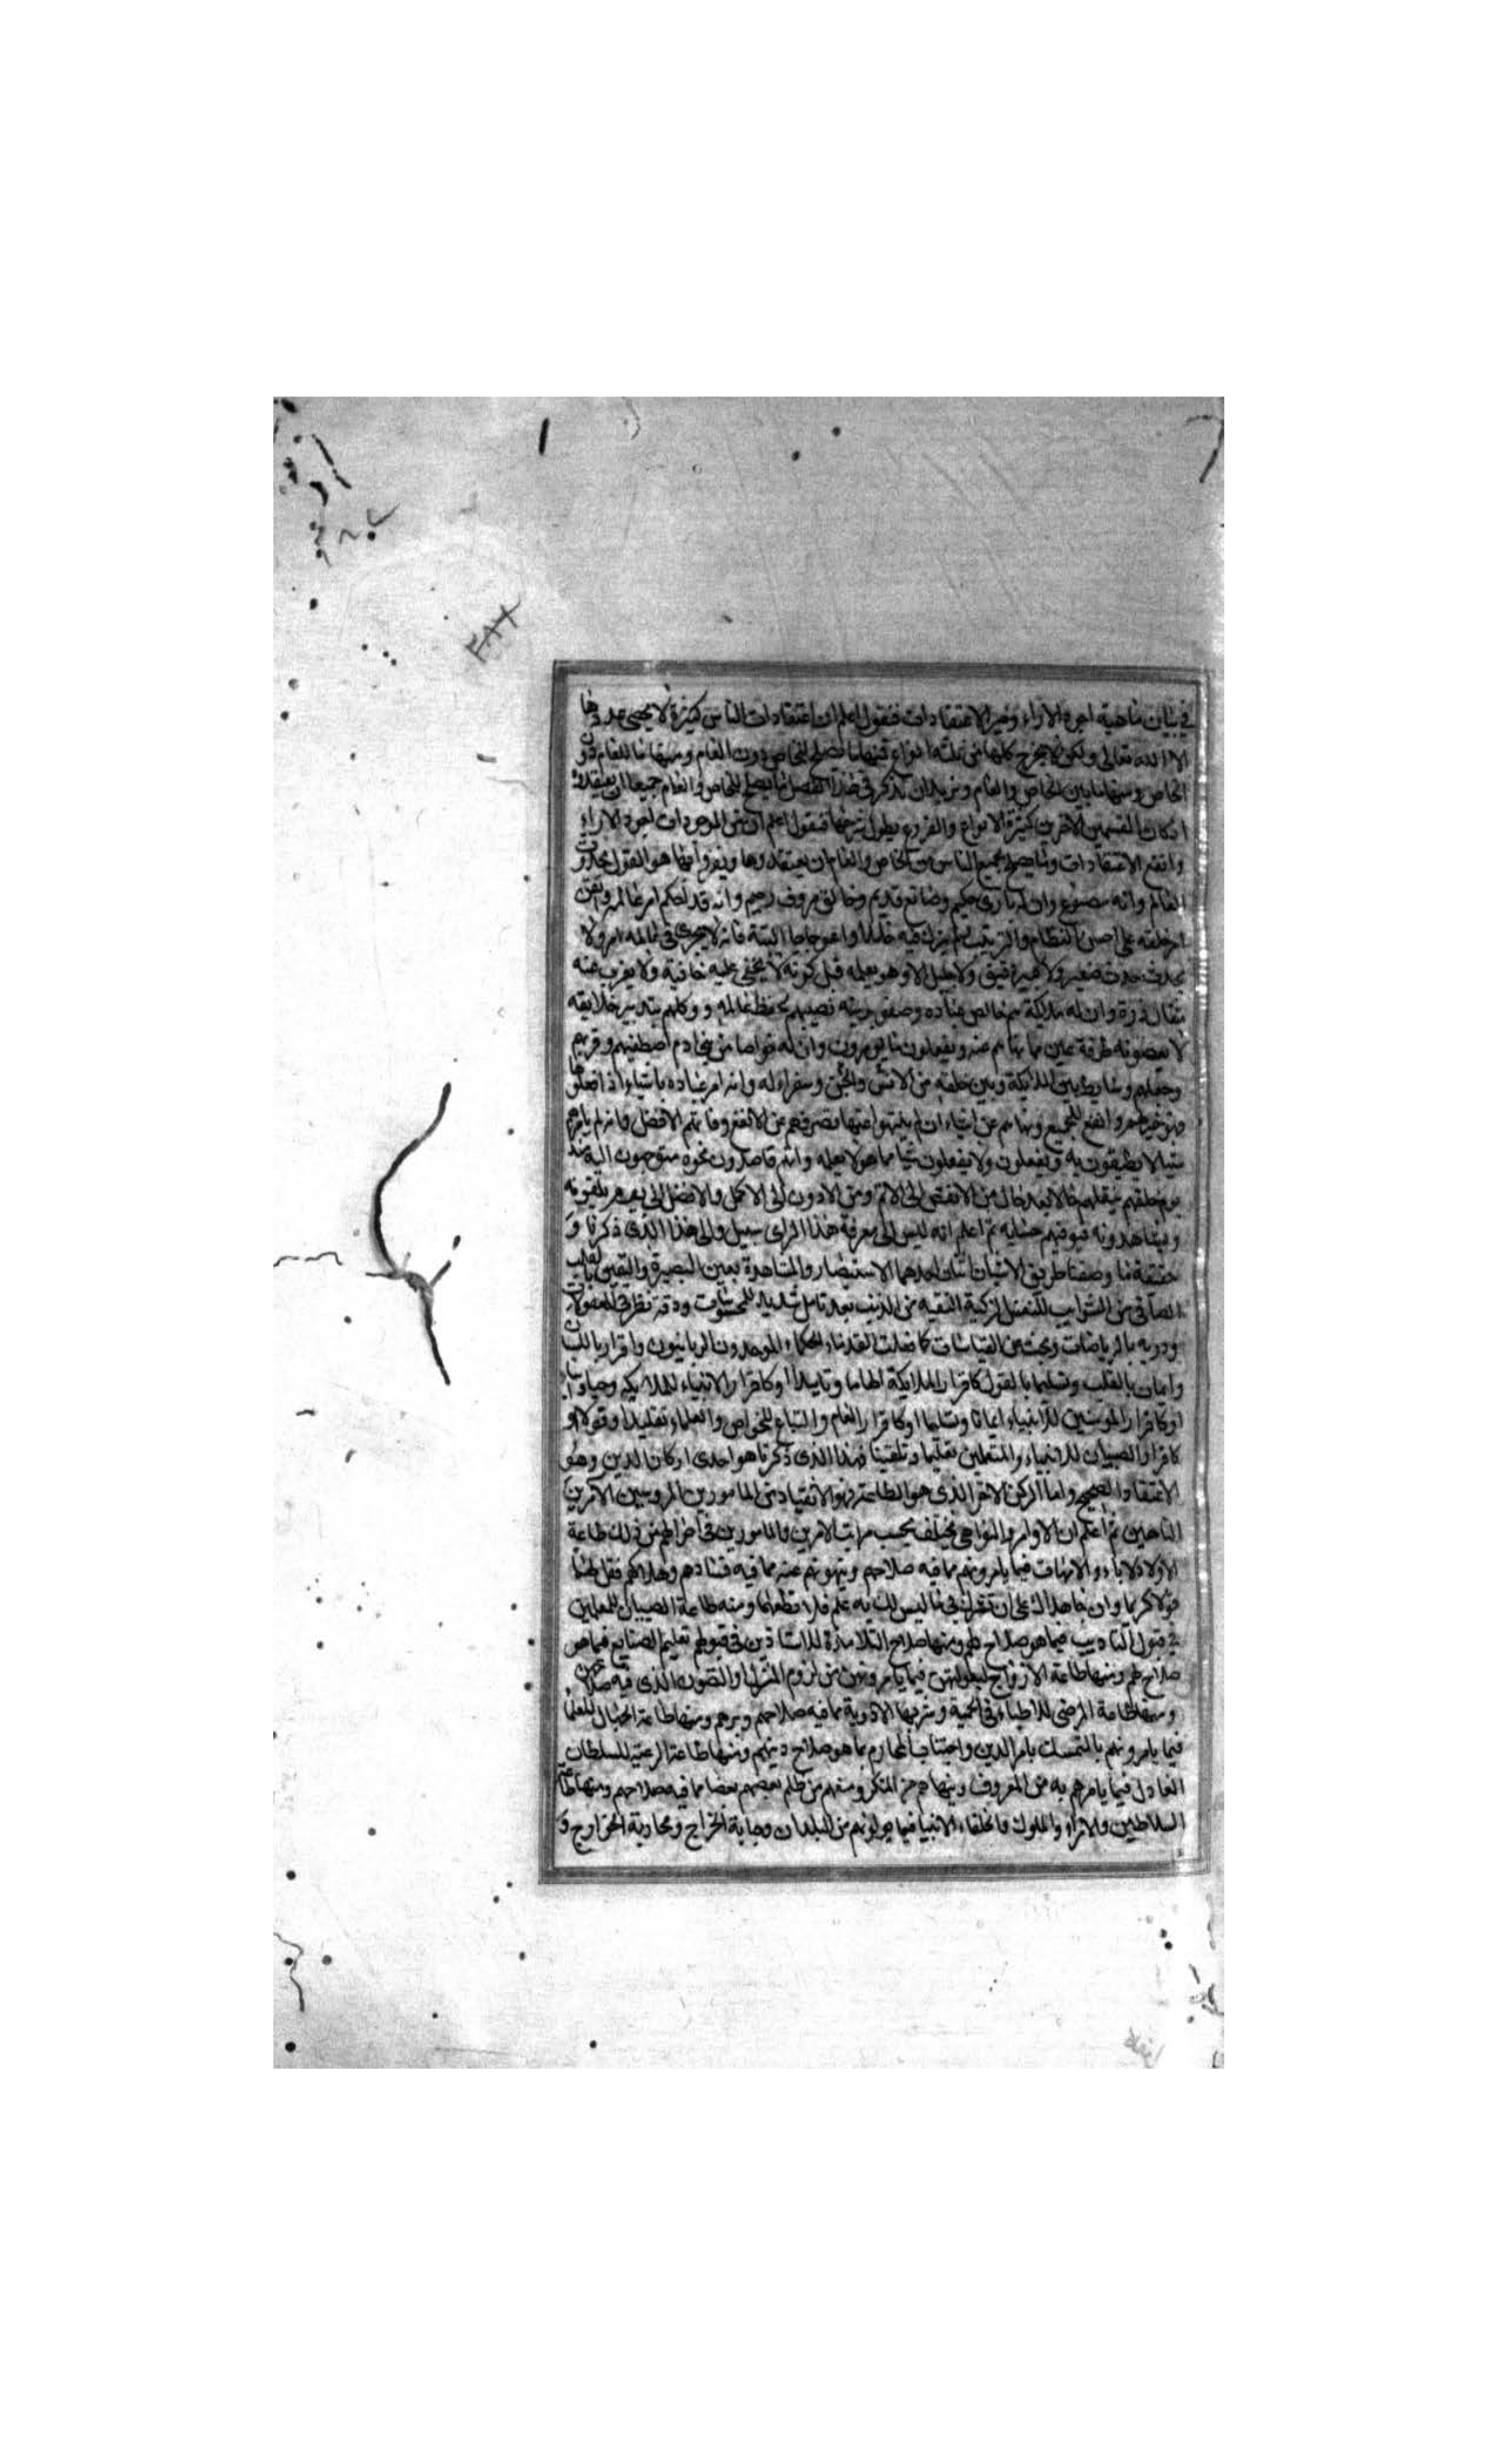 في بيان ماهية اجود الاراء وخير الاعتقادات فنقول اعلم ان اعتقادات الناس كثيرة لا يحصى عددها
الا الله تعالى ولكن لا يخرج كلها من ثلثة انواع فمنها ما يصلح للخاص دون العام ومنها ما للعام دون
الخاص ومنها ما بين الخاص والعام ونريد ان نذكر في هذا الفصل ما يصلح للخاص والعام جميعا ان يعتقدوه
اذ كان القسمين الاخرين كثيرة الانواع والفروع يطول شرحها فنقول اعلم ان من الموجودات اجود الاراء
وانفع الاعتقادات وما يصلح لجميع الناس من الخاص والعام ان يعتقدوها ويقروا بها هو القول بحدوث
العالم وانه مصنوع وان له باري حكيم وصانع قديم وخالق رءوف رحيم وانه قد احكم امر عالمه واتقن
امر خلقه على احسن النظام والترتيب لم يترك فيه خللا واعوجاجا البتة فانه لا يجري في عالمه امر ولا
يحدث حدث صغير ولا كبير دقيق ولا جليل الا وهو يعلمه قبل كونه لا يخفى عليه خافية ولا يعزب عنه
مثقال ذرة وان له ملائكة هم خالص عباده وصفو بريته نصبهم لحفظ عالمه ووكلهم بتدبير خلايقه
لا يعصونه طرفة عين مما نهاهم عنه ويفعلون ما يومرون وان له خواصا من بني ادم اصطفيهم وقربهم
وجعلهم وسايط بين الملائكة وبين خلقه من الانس والجن وسفراء له وانه امر عباده باشياء اذا فعلوها
فهو خير لهم وانفع للجميع ونهاهم عن اشياء ان لم ينتهوا عنها صرفهم عن الانفع وفاتهم الافضل فانه لم يامرهم
شيا لا يطيقون به ويفعلون ولا يفعلون شيا مما هو لا يعلمه وانهم قاصدون نحوه متوجهون اليه منذ
يوم خلقهم ينقلهم حالا بعد حال من الانقص الى الاتم ومن الادون الى الاكمل والافضل الى يوم يلقونه
ويشاهدونه فيوفيهم حسابه ثم اعلم انه ليس الى معرفة هذا الراى سبيل والى هذا الذى ذكرنا و
حقيقة ما وصفنا طريق الانسان اثنان احدهما الاستبصار والمشاهدة بعين البصيرة واليقين بالقلب
الصافي من الشوايب للنفس الزكية النقية من الذنب بعد تامل شديد للمحسوسات ودقة نظر في المعقولات
ودربه بالرياضات وبحث عن القياسات كما فعلت القدماء الحكماء الموحدون الربانيون واقرار باللسان
وايمان بالقلب وتسليما بالقول كاقرار الملايكة الهاما وتاييدا او كاقرار الانبياء للملايكه وحيا وانباء
او كاقرار المومنين للانبياء ايمانا وتسليما او كاقرار العام والتباع للخواص والعلماء تقليدا وقولا او
كاقرار الصبيان للاباء والمتعلمين تعليما وتلقينا فهذا الذى ذكرناه هو احدى اركان الدين وهو
الاعتقاد الصحيح واما الركن الاخر الذى هو الطاعة فهو الانقياد من المامورين المروسين الآمرين
الناهين ثم اعلم ان الاوامر والنواهي يختلف بحسب مراتب الامرين والمامورين في اطرافهم فمن ذلك طاعة
الاولاد لاباء والامهات فيما يامرونهم مما فيه صلاحهم وينهونهم عنه مما فيه فسادهم وهلاكهم فقل لهما
قولا كريما وان جاهداك على ان تشرك بي ما ليس لك به علم فلا تطعهما ومنه طاعة الصبيان للمعلمين
في قبول التاديب فيما هو صلاح لهم ومنها صلاح التلامذة للاستاذين في قبولهم تعليم الصنايع فيما هو
صلاح لهم ومنها طاعة الازواج لبعولتهن فيما يامرونهن من لزوم المنزل والتصون الذى فيه صلاحهن
ومنها طاعة المرضى للاطباء في الحمية وشربها الادوية مما فيه صلاحهم وبرءهم ومنها طاعة الجهال للعلماء
فيما يامرونهم بالتمسك بامر الدين واجتناب المحارم بما هو صلاح دينهم ومنها طاعة الرعية للسلطان
العادل فيما يامرهم به من المعروف وينهاهم عن المنكر ومنعهم من ظلم بعضهم بعضا مما فيه صلاحهم ومنها طاعة
السلاطين والامراء والملوك والخلفاء الانبيا فيما يولونهم من البلدان وجباية الخراج ومحاربة الخوارج و